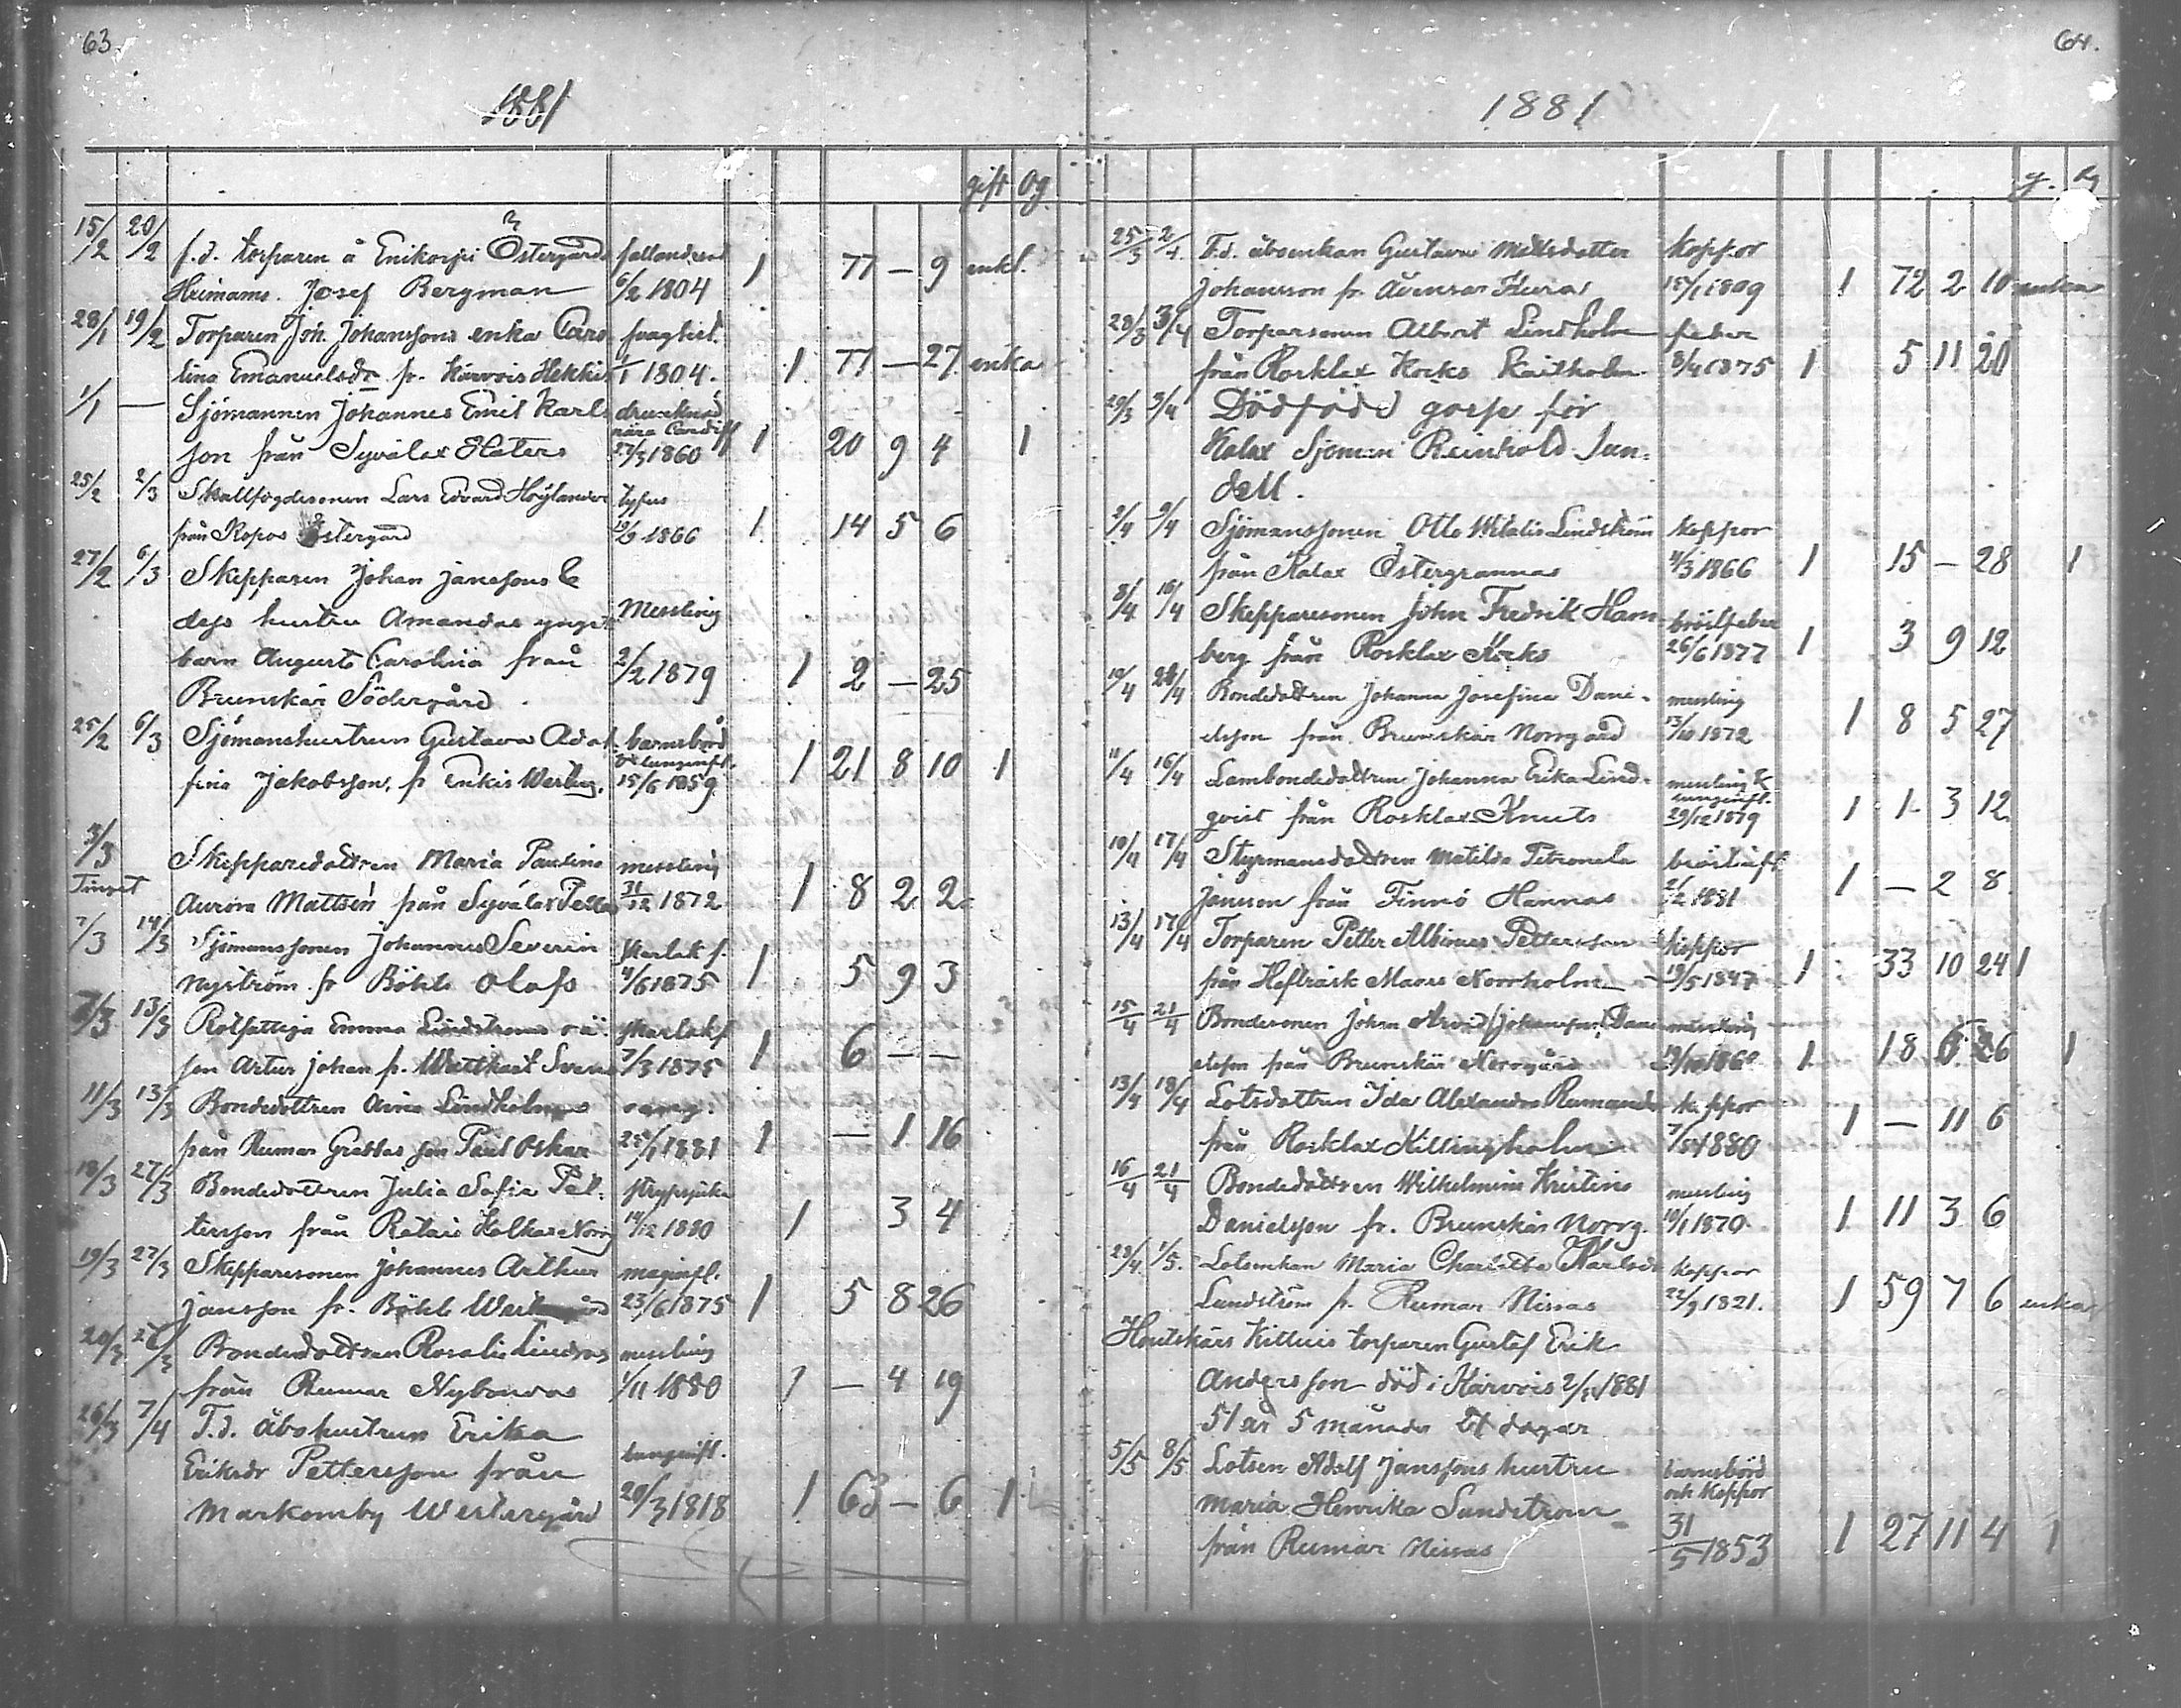 63
1881
gift Og.
15/2 20/2 f.d. torparen å Enikorpi Östergårds fallandesot
Heimans. Josef Bergman 6/2 1804 1 77 — 9 enkl.
28/1 19/2 Torparen Joh. Johanssons enka Caro
lina Emanuelsdr fr. Kärvois Hekkis 1/1 1804. 1 77 — 27 enka
1/1 — Sjömannen Johannes Emil Karls drunknad
nära Cardiff
son från Syvälax Haters 27/3 1860 1 20 9 4 1
25/2 2/3 Skallfogdesonen Lars Edvard Höylander typus
från Kopos Östergård 19/9 1866 1 14 5 6
27/2 6/3 Skepparen Johan Janssons &
dess hustru Amandas yngst Messling
barn Augusta Carolina från 2/2 1879 1 2 — 25
Brunskär Södergård
25/2 6/3 Sjömanshustrun Gustava Adol barnsbörd
& lunginfl.
fina Jakobsson, fr Enkis Westerg. 15/6 1859 1 21 8 10 1
3/3 Skepparedottren Maria Paulina messling
Tinget
Aurora Mattsén från Syvälax Pellas 31/12 1872 1 8 2 2
7/3 14/3 Sjömanssonen Johannes Severin skarlak f.
Nyström fr Böhle Olofs 4/6 1875 1 5 9 3
7/3 13/3 Rotfattiga Emma Lindströms o.ä. skarlak f
son Artur Johan fr. Wattkast Svens 7/3 1875 1 6 — —
11/3 13/3 Bondedottren Aina Lindholms
från Rumar Grabbas son Paul Oskar 25/1 1881 1 — 1 16
18/3 27/3 Bondedottren Julia Sofia Pet- strypsjuka
tersson från Retais Kalkas Norrg 14/12 1880 1 3 4
19/3 27/3 Skepparesonen Johannes Arthur maginfl.
Jansson fr. Böhle 23/6 1875 1 5 8 26
20/3 27/3 Bondedottren Rosalie Lindroos messling
från Rumar Nybondas 1/11 1880 1 — 4 19
26/3 7/4 F.d. åbohustrun Erika
Eriksdr Pettersson från lunginfl.
Markomby Westergård 20/3 1818 1 63 — 6 1
64.
1881
g. Og
25/3 2/4 F.d. åboenkan Gustava Matsdotter koppor
Johansson fr. Åvensar 15/1 1809 1 72 2 10 enka
28/3 3/4 Torparsonen Albert Lindholm feber
från Rosklax Kocks 8/4 1875 1 5 11 20
29/3 9/4 Dödfödd gosse för
Kalax Sjöman Reinhold Sun-
dell.
2/4 9/4 Sjömanssonen Otto Vitalis Lindström koppor
från Kalax Östergrannas 4/3 1866 1 15 — 28 1
8/4 16/4 Skepparesonen John Fredrik Ham bröstfeber
berg från Rosklax Kocks 26/6 1877 1 3 9 12
10/4 24/4 Bondedottren Johanna Josefina Dani- messling
elsson från Brunskär Norrgård 13/10 1872 1 8 5 27
11/4 16/4 Lambondedottren Johanna Erika Lind- messling &
lunginfl.
qvist från Rosklax Knuts 29/12 1879 1 1 3 12
10/4 17/4 Styrmansdottren Matilda Petronela bröstinfl
Jansson från Finnö Hannas 2/2 1881 1 — 2 8
13/4 17/4 Torparen Petter Albinus Pettersson koppor
från Hefträsk Mans Norrholm 19/5 1847 1 33 10 24 1
15/4 21/4 Bondesonen Johan Arvid (Johansson) Dani messling
elsson från Brunskär Norrgård 19/10 1862 1 18 5 26 1
13/4 18/4 Lotsdottren Ida Alexandra Rumander koppor
från Rosklax Killingholm 7/5 1880 1 — 11 6
16/4 21/4 Bondedottren Wilhelmina Kristina messling
Danielsson fr. Brunskär Norrg. 10/1 1870 1 11 3 6
28/4 1/5. Lotsenkan Maria Charlotta Karlsdr koppor
Lundström fr. Rumar Nissas 22/9 1821. 1 59 7 6 enka
Houtskärs Kittuis torparen Gustaf Erik
Andersson död i Kärvois 2/4 1881
51 år 5 månader 24 dagar
5/5 8/5 Lotsen Adolf Janssons hustru barnsbörd
och koppor
Maria Henrika Sundström
från Rumar Nissas 31/5 1853 1 27 11 4 1